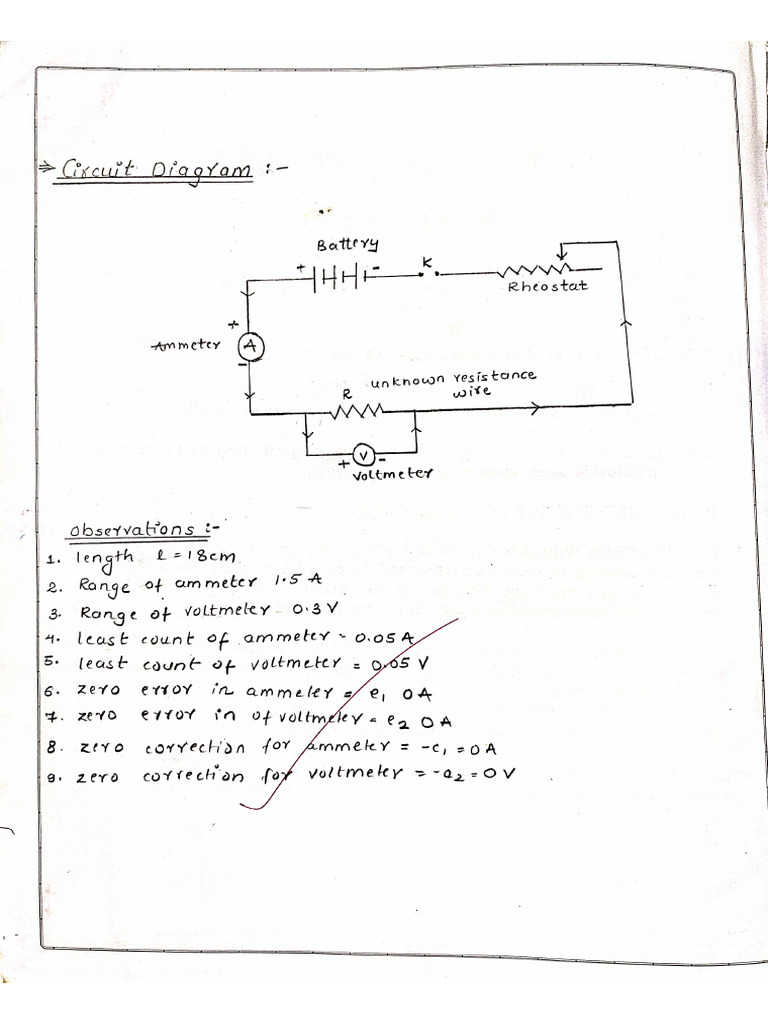 ⇒ Circuit Diagram :-
Battery
+ - K
Rheostat
+
Ammeter A
-
unknown resistance
R wire
+ V -
voltmeter
observations :-
1. length l = 18cm
2. Range of ammeter 1.5 A
3. Range of voltmeter 0.3 V
4. least count of ammeter - 0.05 A
5. least count of voltmeter = 0.05 V
6. zero error in ammeter = e₁ 0A
7. zero error in of voltmeter = e₂ 0A
8. zero correction for ammeter = -e₁ = 0A
9. zero correction for voltmeter = -e₂ = 0V